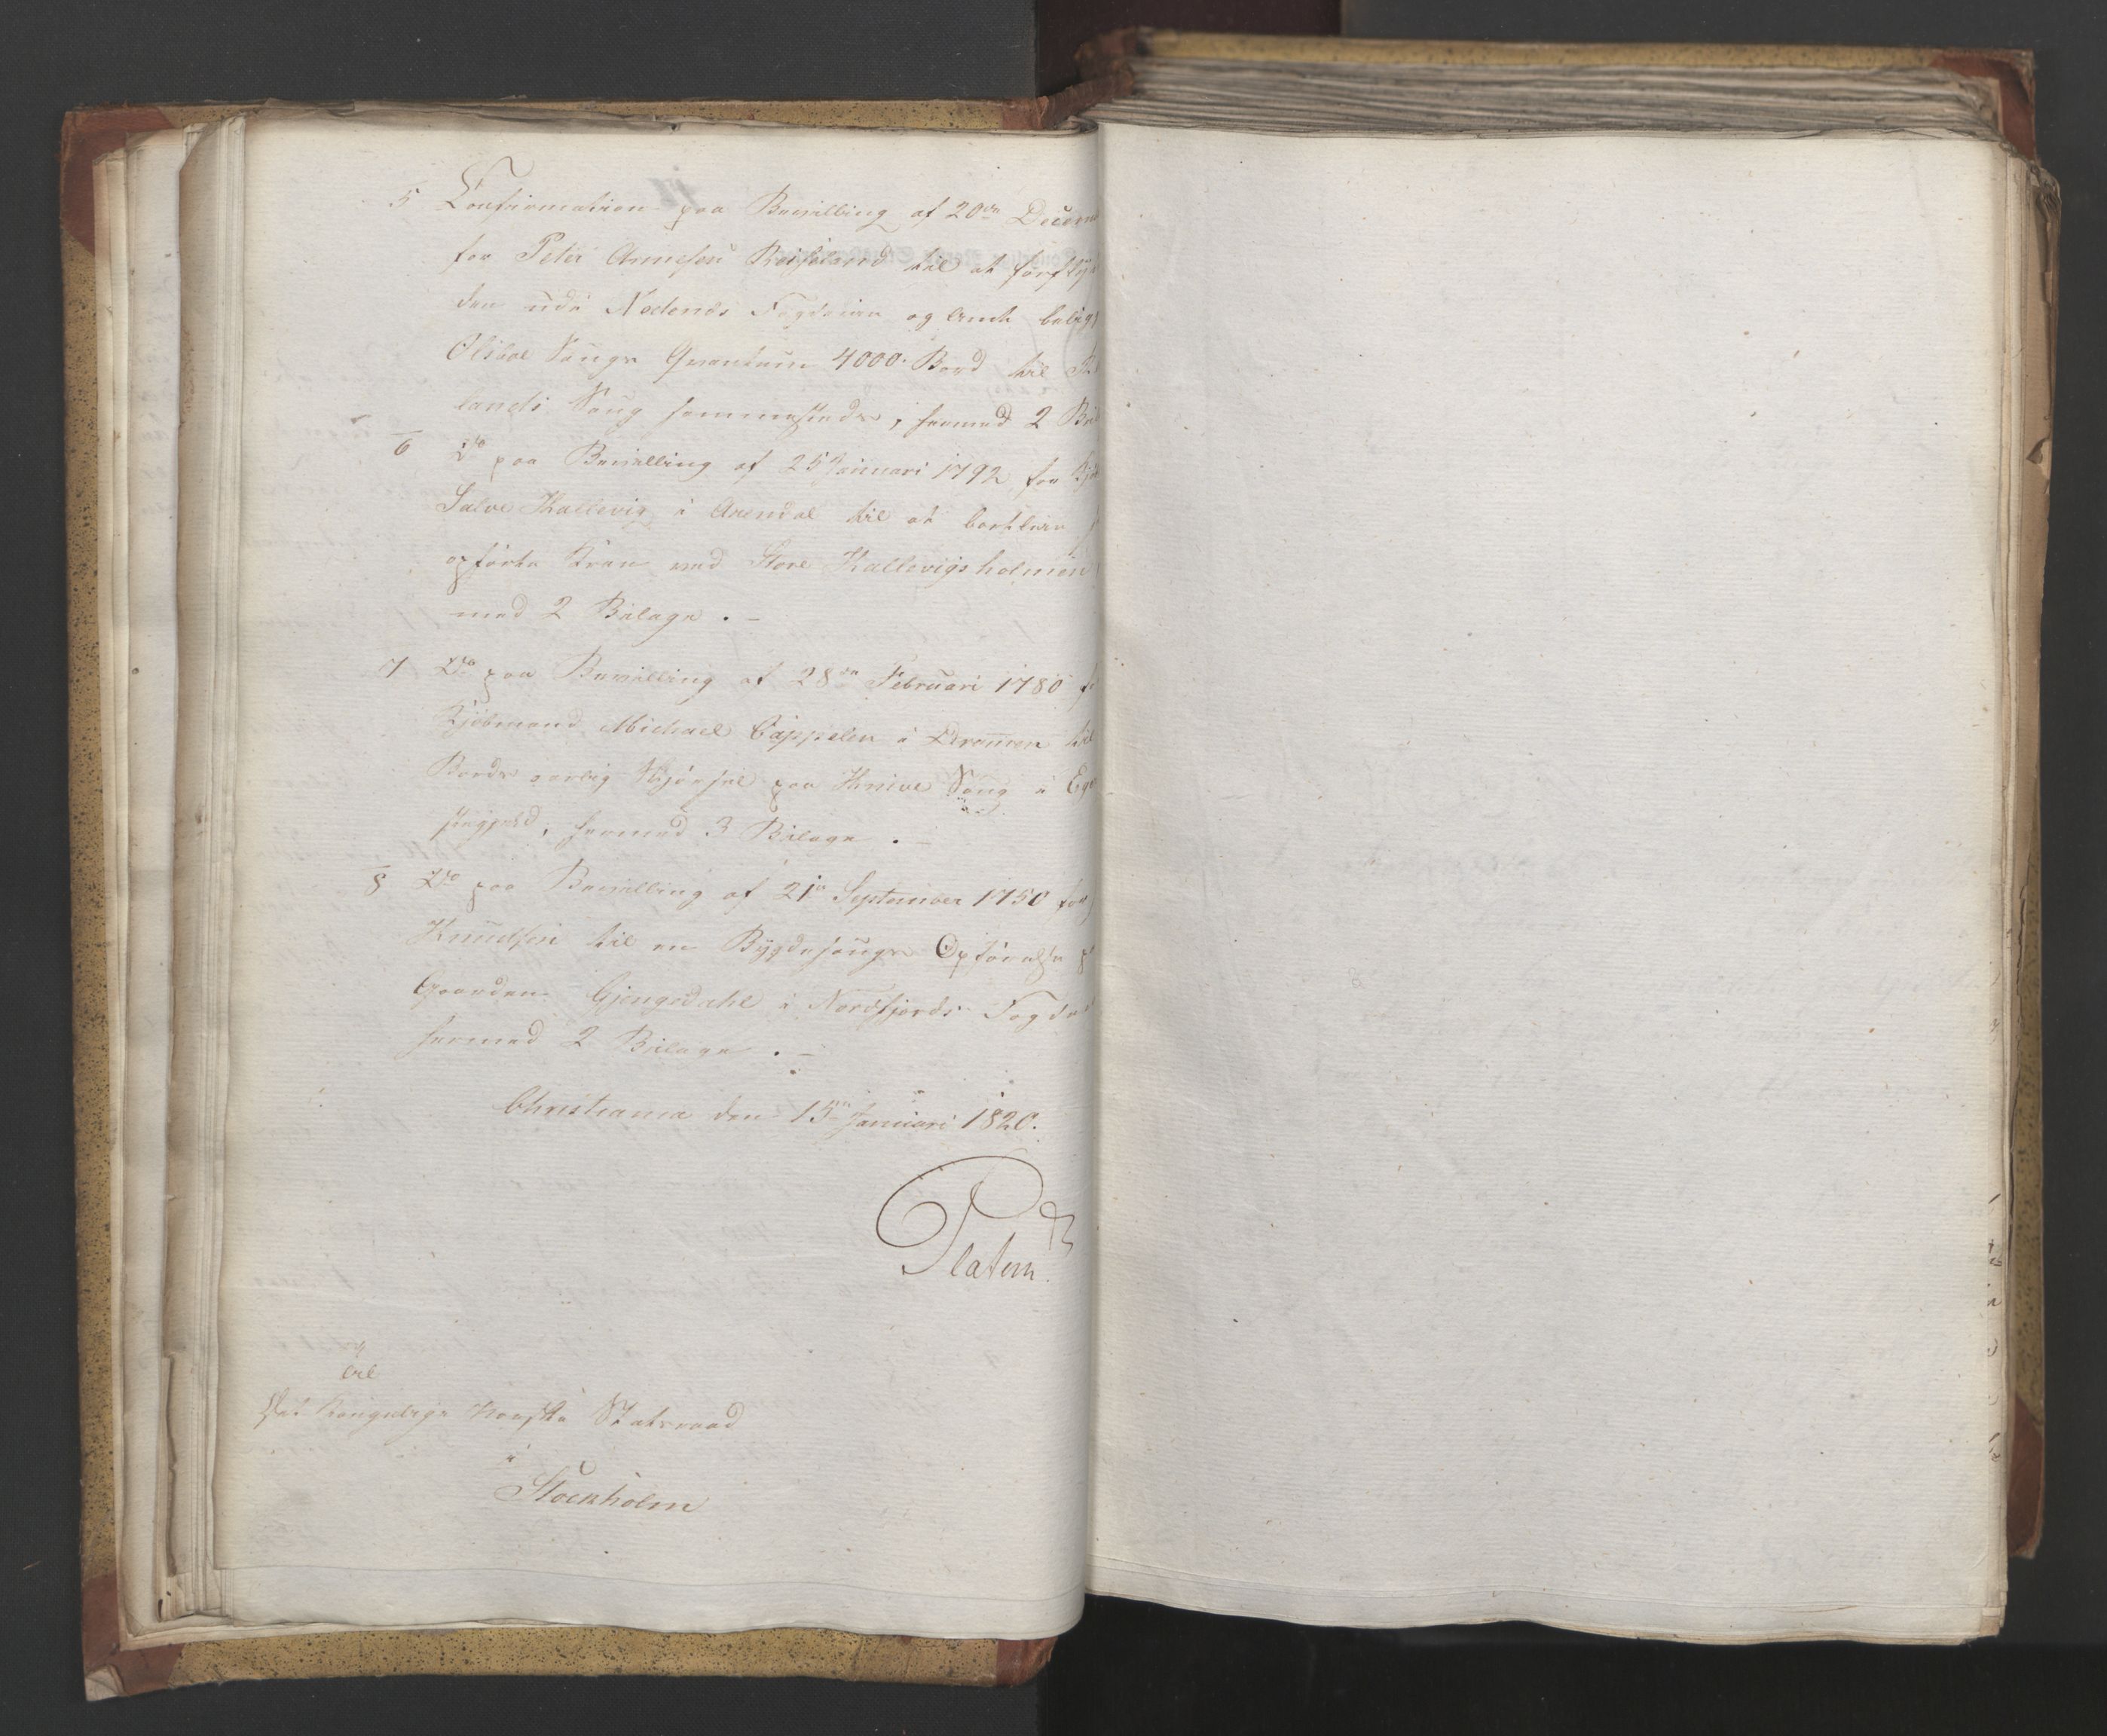 5 Confirmation paa Bevilling af 20de Decem
for Peter Annesøn til at forfly
den udi Nedenes Fogderie og Amt belig
Olsboe Saugs Qvantum 4000 Bord til
lands Saug sammesteds, hermed 2 Bi
6 Do paa Bevilling af 25 Januari 1792 for Kjø
Salve Kallevig i Arendal til at bortleie
opførte Kran ved Store Kallevigsholmen
med 2 Bilage.
7 Do paa Bevilling af 28de Februari 1780 f
Kjøbmand Michael Cappelen i Drammen til
Bords aarlig Skjørsel paa Knive Saug i Eger
, hermed 3 Bilage.
8 Do paa Bevilling af 21de September 1750 for
Knudsen til en Bygdesaugs Opførelse p
Gaarden Gjengedahl i Nordfjords Fogder
hermed 2 Bilage.
Christiania den 15de Januari 1820.
Platen
Til
Det Kongelige Norske Statsraad
i
Stockholm